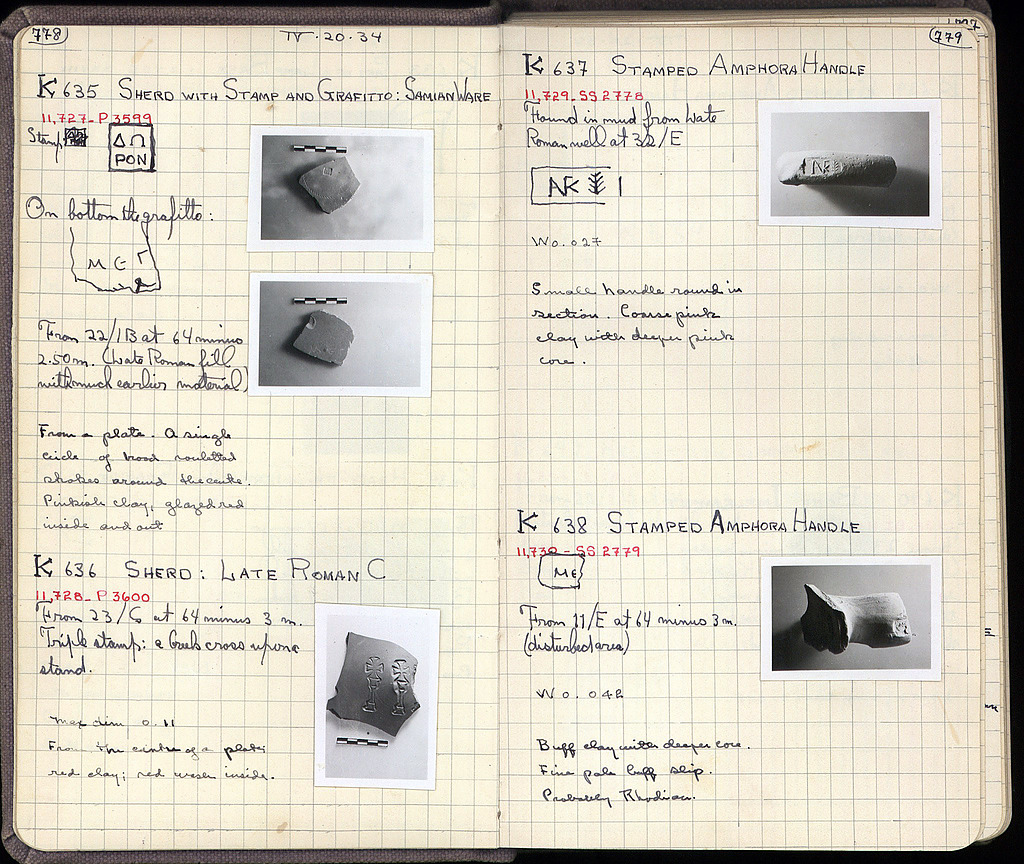 778
IV · 20 · 34
K 635 SHERD WITH STAMP AND GRAFITTO: SAMIAN WARE
11,727 - P 3599
Stamp
ΔΩ
PON
On bottom the grafitto:
Μ Є Γ
From 22/ΙΒ at 64 minus
2.50 m. (Late Roman fill
with much earlier material)
From a plate. A single
circle of broad rouletted
strokes around the centre.
Pinkish clay, glazed red
inside and out
K 636 SHERD: LATE ROMAN C
11,728 - P 3600
From 23/ at 64 minus 3 m.
Triple stamp: a Greek cross upon a
stand.
Max dim 0.11
From the centre of a plate;
red clay; red wash inside.
777
779
K 637 STAMPED AMPHORA HANDLE
11,729 - SS 2778
Found in mud from Late
Roman well at 32/E
W 0.027
Small handle round in
section. Coarse pink
clay with deeper pink
core.
K 638 STAMPED AMPHORA HANDLE
11,730 - SS 2779
ΜЄ
From 11/E at 64 minus 3 m.
(disturbed area)
W 0.042
Buff clay with deeper core.
Fine pale buff slip.
Probably Rhodian.